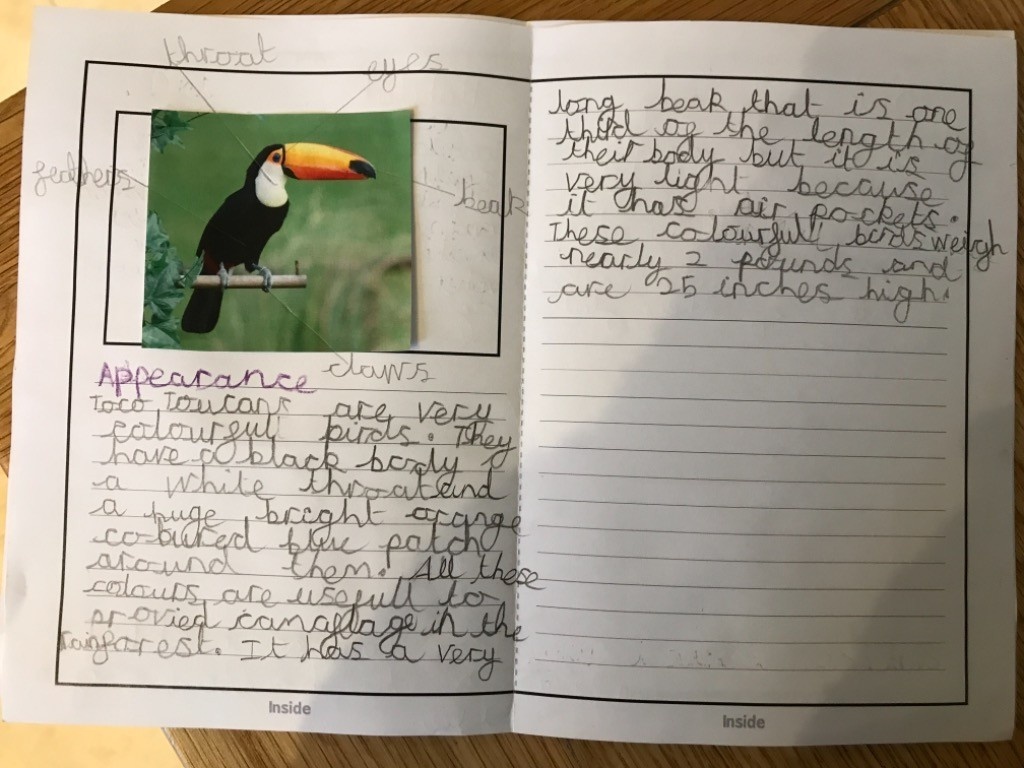 throat
eyes
feathers
beak
claws
Appearance
Toco Toucans are very
colourfull birds. They
have a black body
a white throat and
a huge bright orange
coloured blue patch
around them. All these
colours are usefull to
provied camaflage in the
rainforrest. It has a very
Inside
long beak that is one
third of the length of
their body but it is
very light because
it has air pockets.
These colourfull birds weigh
nearly 2 pounds and
are 25 inches high.
Inside